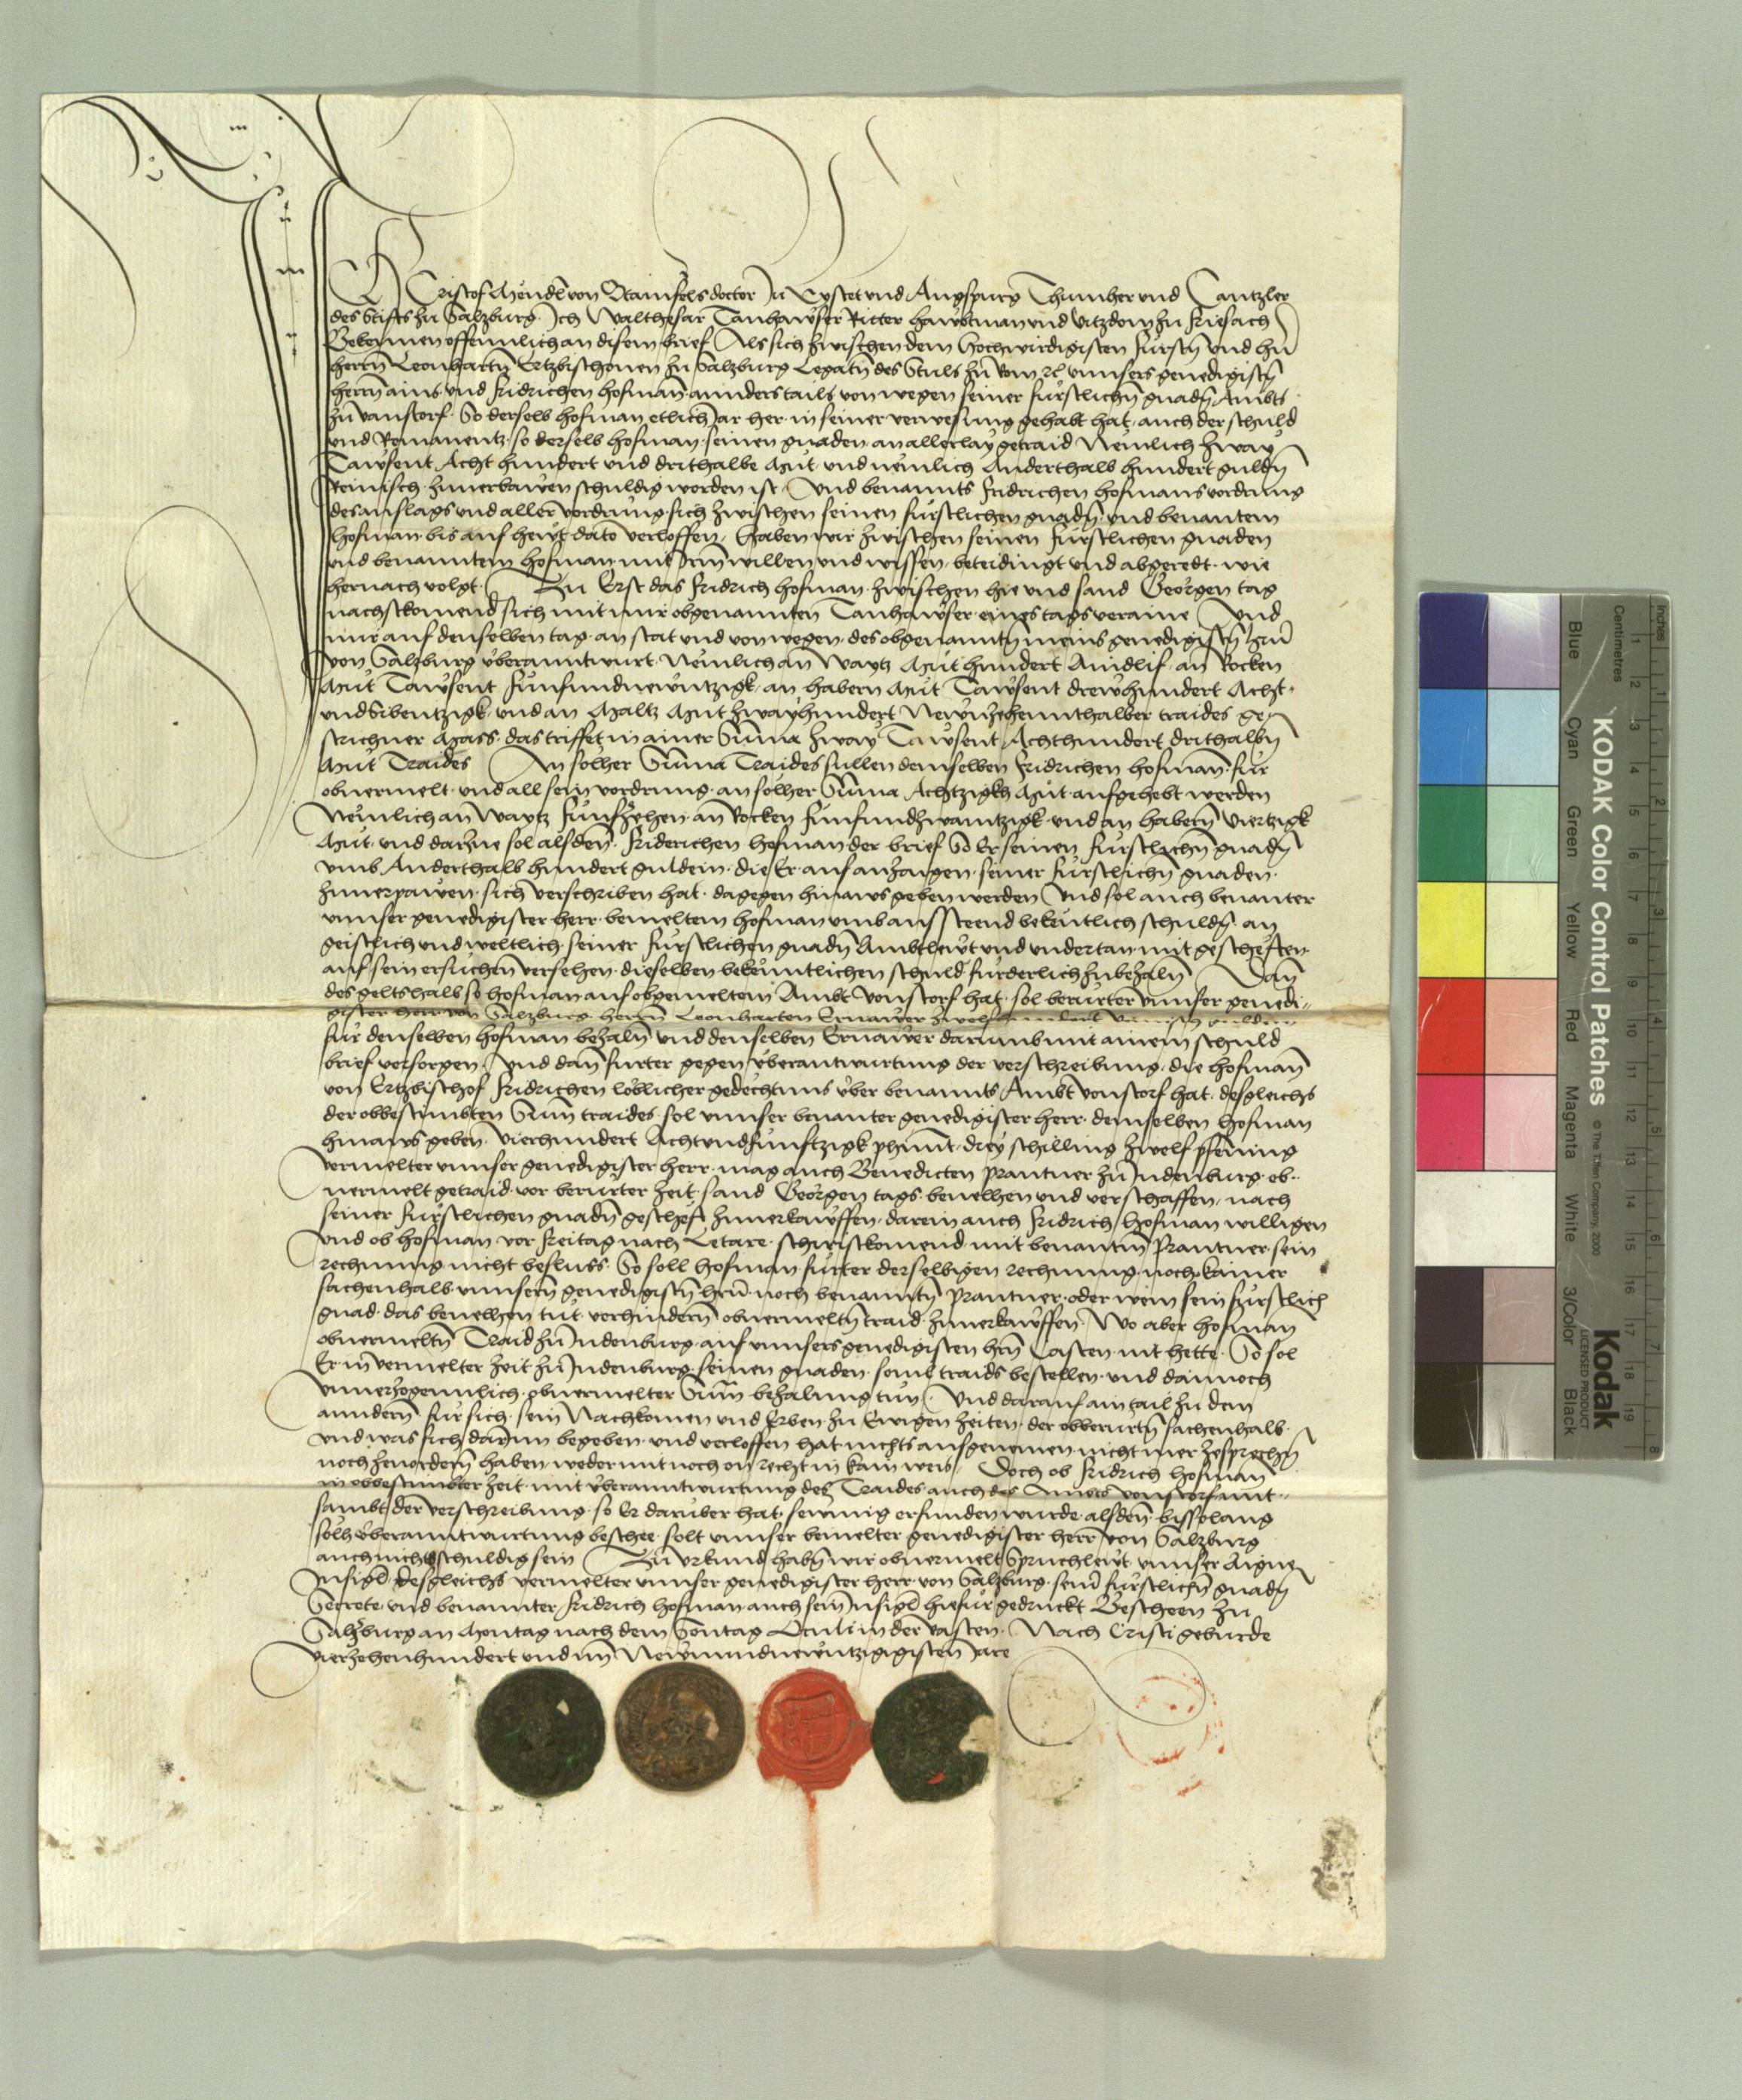 Ich
Cristof Mendl von Stainfels doctor Zu Eystet und Augspurg Thumher und Cantzler
des Stifts zu Saltzburg. Ich Walthesar Tanhawser Ritter hawbtman und vitzdom zu Friesach
Bekennen offennlich an disem brief Als sich zwischen dem Hochwirdigisten Fürstn und hn
herrn Leonhartn Ertzbischouen zu Saltzburg Legatn des Stuls zu Rom rc unnsers genedigistn
herrn ains und Fridrichen hofman annders tails von wegen seiner fürstlichn gnadn Ambts
zu Vanstorf. So derselb hofman etlich Jar her in seiner verwesung gehabt hat, auch der schuld
und Romanentz so derselb hofman seinen gnaden an allerlay getraid Nemlich zway
Tawsent Acht hundert und drithalbe Mut und nemlich Anderthalb hundert guldn
Reinisch zuuerbawen schuldig worden ist. Und benannts Fridrichen hofmans vordrung
des anslags und aller vordrung sich zwischen seinen fürstlichen gnadn und benantem
hofman bis auf hewt dato verloffen, Haben wir zwischen seinen fürstlichen gnaden
und benanntem hofman mit Irm willen und wissen, beteidingt und abgeredt wie
hernach volgt. Zu Erst das Fridrich hofman zwischen hie und sand Georgen tag
nachstkomend sich mit mir obgenannten Tanhawser eins tags veraine Und
mir auf denselben tag an stat und von wegen des obgenanntn meins genedigistn hrn
von Saltzburg uberanntwurt Nemlich an Waytz Mut hundert Aindlif an Rocken
Mut Tawsent Funfundnewntzigk, an habern Mut Tawsent drewhundert Acht
undsibentzigk und an Maltz Mut zwayhundert Newnzehennthalber traides ge
strichner Mass, das triffet in ainer Summa zway Tawsent Achthundert drithalbn
Mut Traides An solher Summa Traides sullen demselben Fridrichen hofman für
obuermelt und all sein vordrung an solher Summa Achtzigkh Mut aufgehebt werden
Nemlich an Waytz Funfzehen an Rocken Funfundzwaintzigk und an habern Viertzigk
Mut und darzue sol alsden Friderichen hofman der brief So Er seinen fürstlichn gnadn
umb Anderthalb hundert guldein die Er auf anzaigen seiner fürstlichn gnaden
zuuerpawen sich verschriben hat, dagegen hinaws geben werden Und sol auch benanter
unnser genedigister herr bemeltem hofman umb aussteend bekentlich schuldn an
geistlich und weltlich seiner fürstlichen gnadn Ambtlewt und undertan mit gescheften
auf sein ersuchen versehen dieselben bekenntlichen schuld fürderlich zubezaln Dan
des gelts halb so hofman auf obgemeltem Ambt Vonstorf hat sol berurter unnser genedi
gister herr von Saltzburg herrn Leonharten Ernawer zwelfhundert Reinisch gulden
für denselben hofman bezaln und denselben Ernawer darumb mit ainem schuld
brief versorgen Und dan furter gegen uberantwurtung der verschreibung, die hofman
von Ertzbischof Fridrichen loblicher gedechtnus uber benannts Ambt Vonstorf hat, desgleichs
der obbestimbten Sum traides sol unnser benanter genedigister herr demselben hofman
hinaws geben. Vierhundert Achtundfunftzigk phunt drey schilling zwelf pfening
Vermelter unnser genedigister herr mag auch Benedicten Prantner zu Judenburg ob
uermelt getraid vor berurter zeit sand Georgen tags beuelhen und verschaffen, nach
seiner fürstlichen gnadn gescheft zuuerkawffen, darein auch Fridrich hofman willigen
Und ob hofman vor Freitag nach Letare schiristkomend mit benantm Prantner sein
rechnung nicht besluss So soll hofman furter derselbigen rechnung noch kainer
sachenhalb unnserm genedigistn hrn noch benanntn Prantner oder wem sein fürstlich
gnad das beuelhen tut verhindern obuermeltn traid zuuerkawffen Wo aber hofman
obuermeltn Traid zu Judenburg auf unnsers genedigisten hrn Casten nit hette So sol
Er in vermelter zeit zu Judenburg seinen gnaden souil traids bestellen und dannoch
unuerzogennlich obuermelter Sum bezalung tun Und darauf ain tail zu dem
anndern für sich sein Nachkomen und Erben zu Ewigen zeiten der obberurtn sachenhalb
und was sich darinn begeben und verloffen hat nichts ausgenomen nicht mer zesprechn
noch zeuordern haben weder mit noch on recht in kain weis. Doch ob Fridrich hofman
in obbestimbter zeit mit uberanntwurtung des Traides auch des Ambts Vonstorf mit
sambt der verschreibung so Er daruber hat sewmig erfunden wurde, alsden bissolang
solh uberanntwurtung beschee solt unnser bemelter genedigister herr von Saltzburg
auch nichts schuldig sein Zu urkund habn wir obuermelt Spruchlewt unnser Aigne
Insigl desgleichs vermelter unnser genedigister herr von Saltzburg seinr fürstlichn gnadn
Secrete und benannter Fridrich hofman auch sein Insigl hiefür gedruckt Bescheen zu
Saltzburg an Montag nach dem Sontag Oculi in der Vasten. Nach Cristi geburde
Vierzehenhundert und im Newnundnewntzigisten Jare
KODAK Color Control Patches
© The Tiffen Company, 2000
Kodak
LICENSED PRODUCT
Inches
Centimetres
Blue
Cyan
Green
Yellow
Red
Magenta
White
3/Color
Black